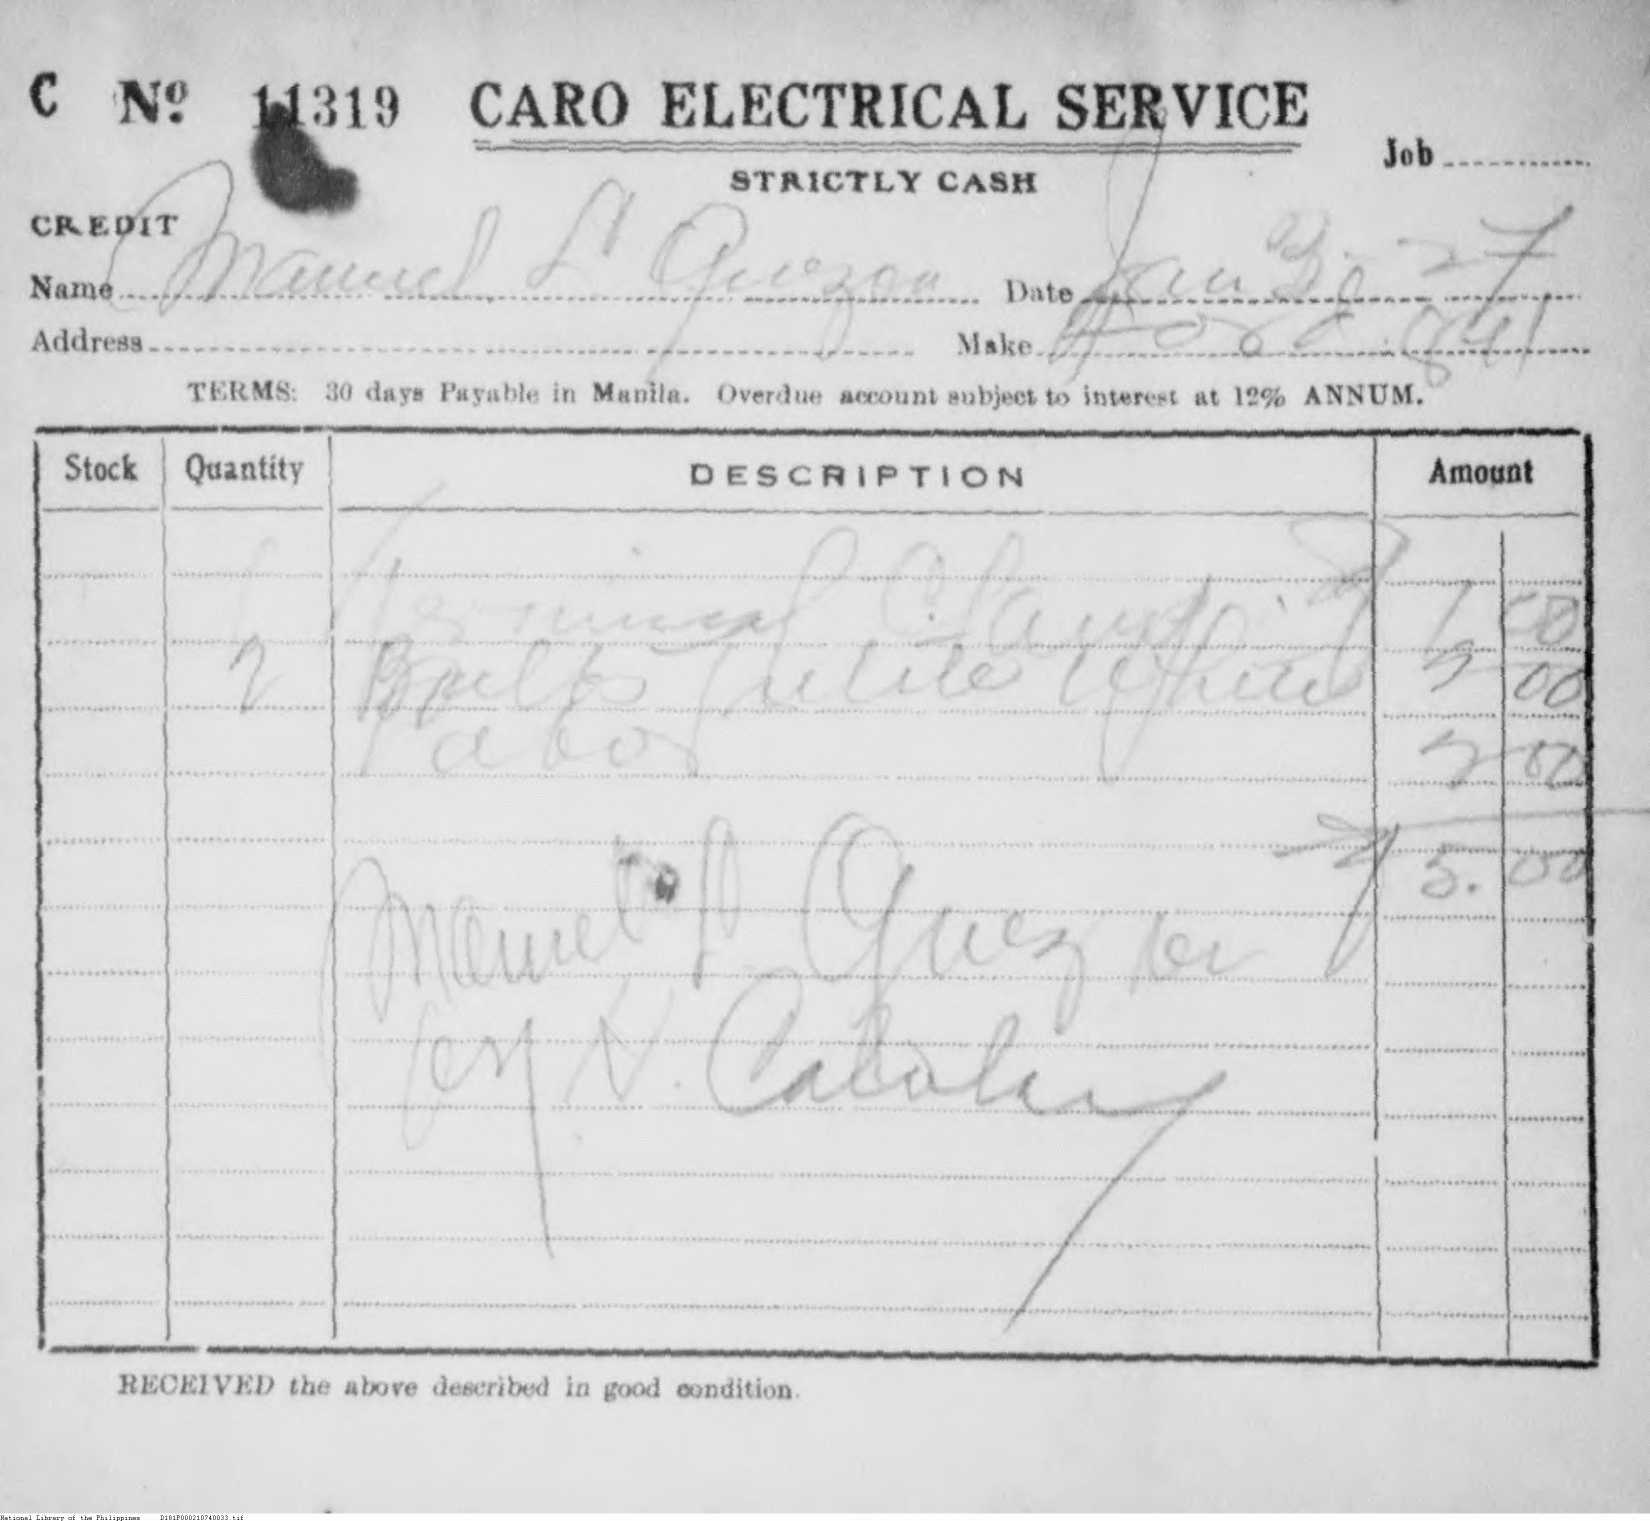 C Nº 11319 CARO ELECTRICAL SERVICE
Job
STRICTLY CASH
CREDIT
Name Manuel L Quezon Date Jan 30 27
Address Make
TERMS: 30 days Payable in Manila. Overdue account subject to interest at 12% ANNUM.
Stock Quantity DESCRIPTION Amount
Terminal Clamp 1 00
2 Bulbs White 2 00
Labor 2 00
₱ 5.00
Manuel L Quezon
RECEIVED the above described in good condition.
National Library of the Philippines D181P000210740033.tif